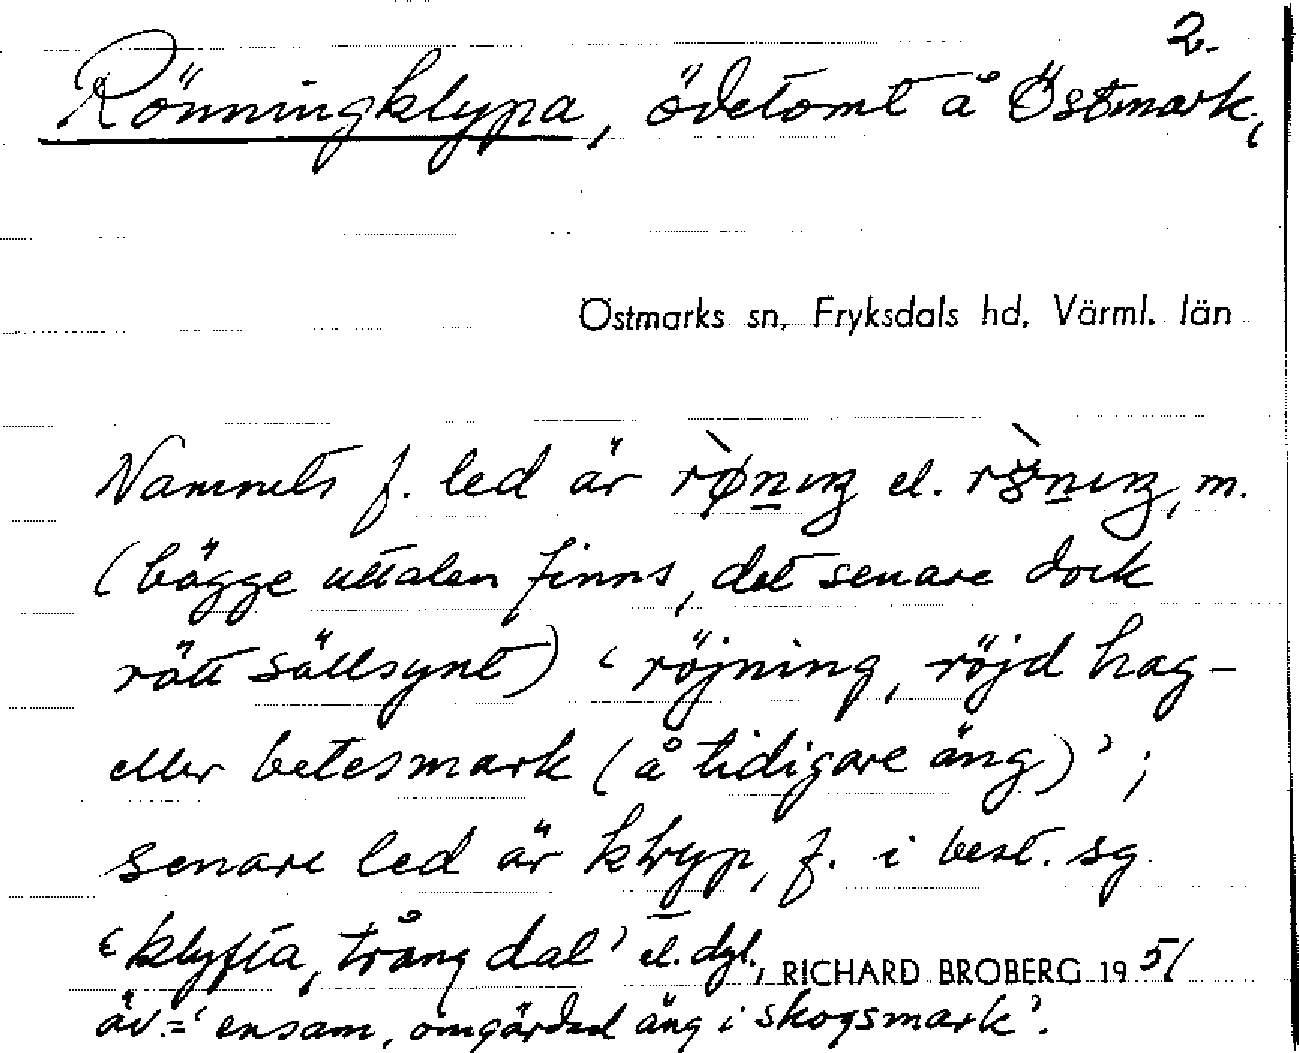 2.
Rönningklypa, ödetomt å Östmark,
Östmarks sn, Fryksdals hd, Värml. län
Namnets f. led är el. m.
(bägge uttalen finns, det senare dock
rätt sällsynt) ‘röjning, röjd hag-
eller betesmark (å tidigare äng)’;
senare led är f. i best. sg.
‘klyfta, trång dal’ el. dyl.,
RICHARD BROBERG 1951
äv.=‘ensam, omgärdad äng i skogsmark’.